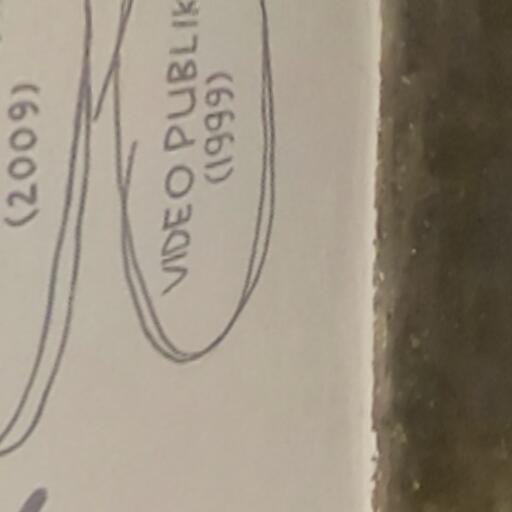 (2009)
VIDEO PUBLIK
(1999)